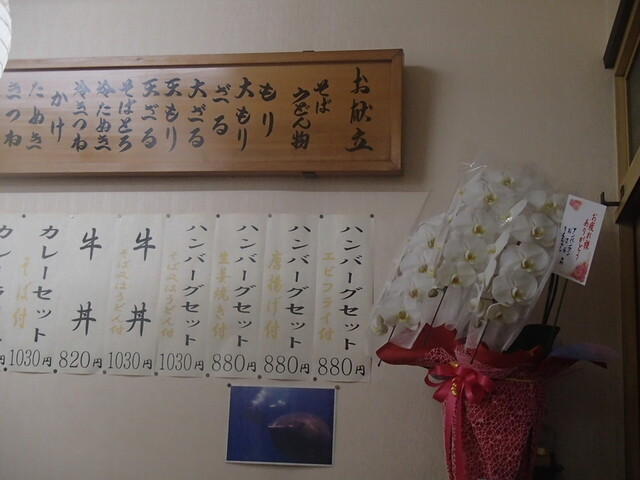 お献立
そば
うどん物
もり
ざる
大もり
大ざる
天もり
天ざる
そばとろ
冷たぬき
冷きつね
かけ
たぬき
きつね
ハンバーグセット
エビフライ付
880円
ハンバーグセット
唐揚げ付
880円
ハンバーグセット
生姜焼き付
880円
ハンバーグセット
そば又はうどん付
1030円
牛丼
そば又はうどん付
1030円
牛丼
820円
カレーセット
そば付
1030円
お疲れ様
ありがとう